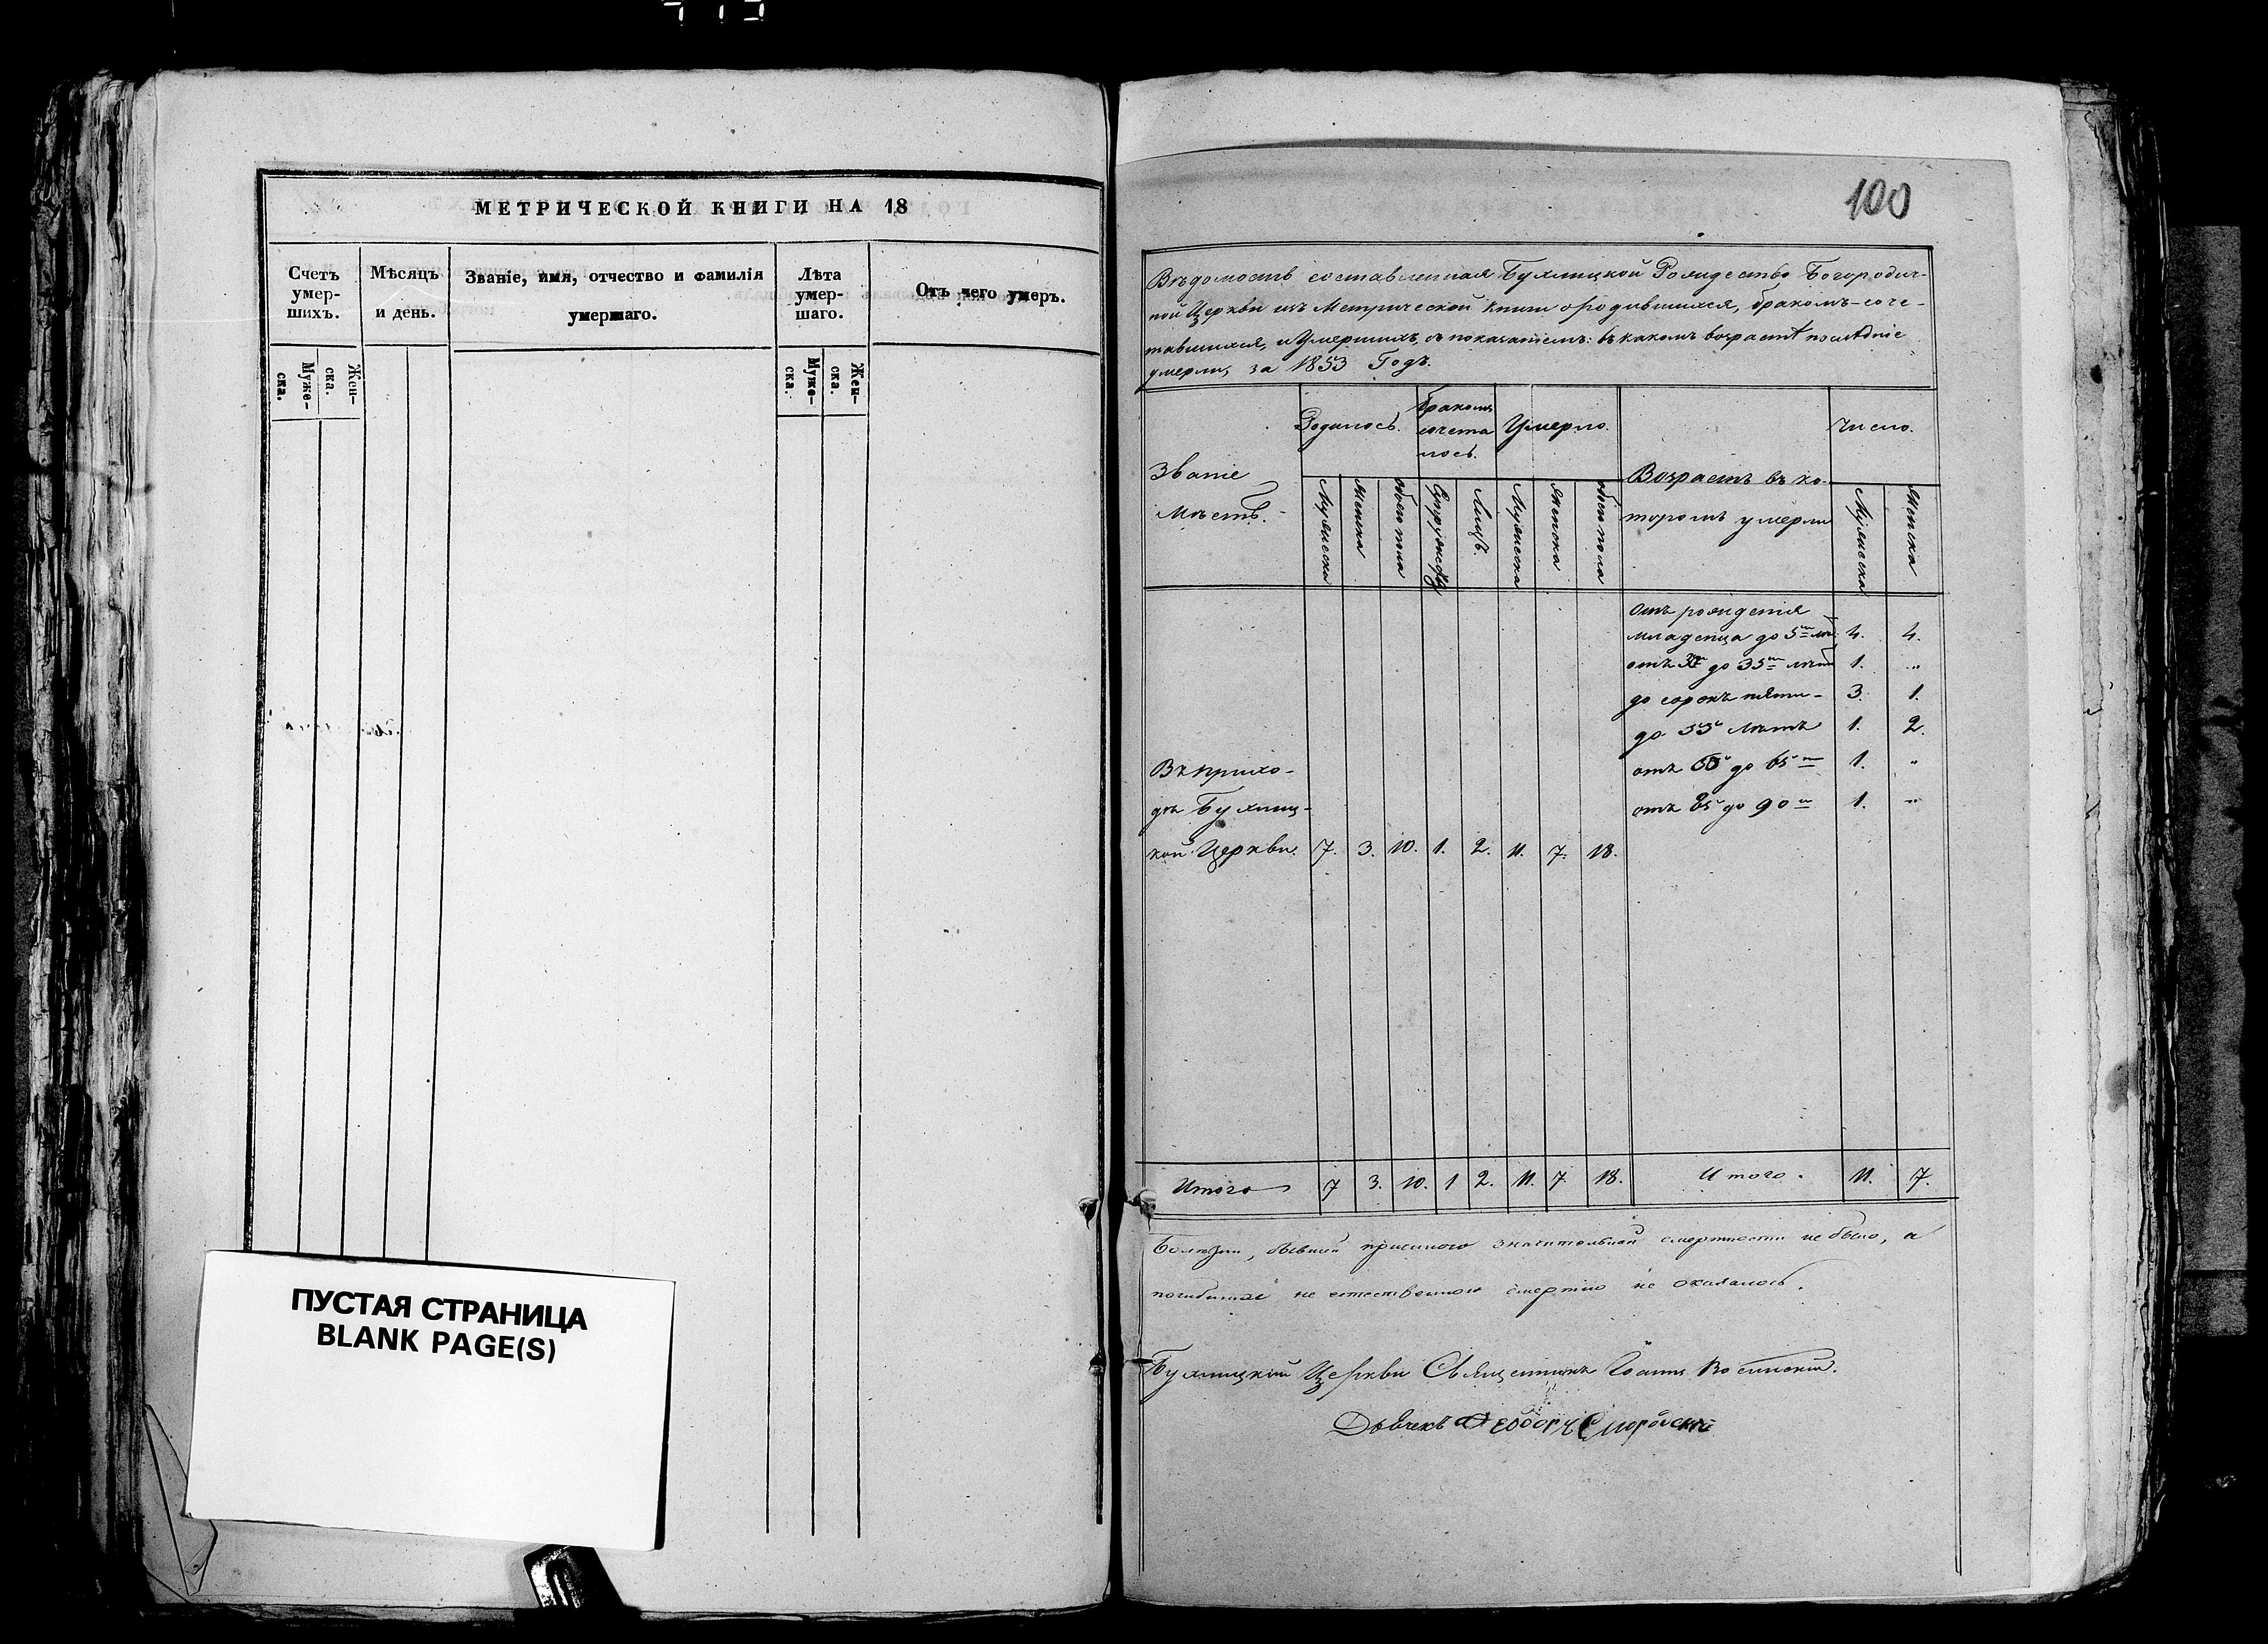 МЕТРИЧЕСКОЙ КНИГИ НА 18
Счетъ умер-шихъ.
Мѣсяцъ и день.
Званіе, имя, отчество и фамилія умершаго.
Лѣта умер-шаго.
Отъ чего умеръ.
Муже-ска.
Жен-ска.
Муже-ска.
Жен-ска.
ПУСТАЯ СТРАНИЦА
BLANK PAGE(S)
100
Вѣдомость составленная Бухлицкой Рождество Богородич-
ной Церкви изъ Метрической книги о родившихся, бракомъ-соче-
тавшихся, и Умершихъ, съ показаніемъ: въ какомъ возрастѣ послѣдніе
умерли, за 1853 Годъ.
Званіе
мѣстъ.
Родилось.
бракомъ
сочета
лось.
Умерло.
Возрастъ въ ко-
торомъ умерли
Число.
Мужеска
Женска
обоего пола
Супружествъ
Лицъ.
Мужеска
Женска
обоего пола
Мужеска
Женска
отъ рожденія
младенца до 5 лѣт. 4. 4.
отъ до 35 лѣтъ 1. "
до сорокъ пяти- 3. 1.
до 55 лѣтъ 1. 2.
Въ прихо- отъ до 65 1. "
дѣ Бухлиц- отъ 85 до 90 1. "
кой Церкви. 7. 3. 10. 1. 2. 11. 7. 18.
Итого 7 3. 10. 1 2. 11. 7 18. Итого. 11. 7.
Болѣзни, бывшей причиною значительной смертности не было, а
погибшихъ не естественною смертію не оказалось.
Бухлицкой Церкви Священникъ Іоаннъ
Дьячекъ Феодоръ